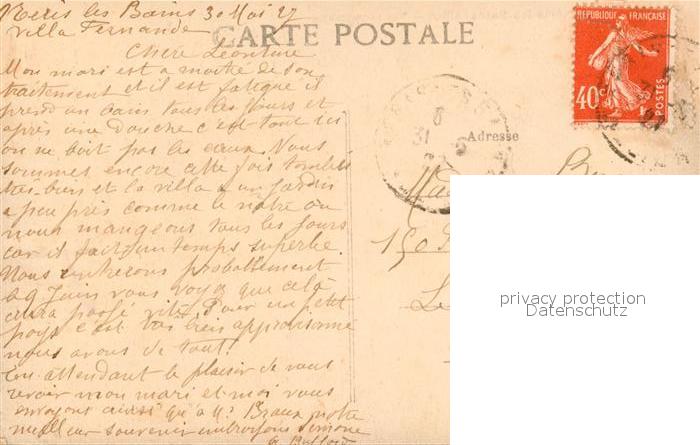 Neris les Bains 30 Mai 27
Villa Fernande
CARTE POSTALE
REPUBLIQUE FRANÇAISE
40c
POSTES
Chere Léontine
Mon mari est a moitié de son
traitement et il est fatigué il
prend un bain tous les jours et
après une douche c'est tout ici
on ne boit pas les eaux. Nous
sommes encore cette fois tombés
tres bien et la villa a un jardin
a peu près comme le notre ou
nous mangeons tous les jours
car il fait un temps superbe.
Nous rentrerons probablement
le 9 Juin vous voyez que cela
aura passé vite. Pour un petit
pays c'est tres bien approvisionné
nous avons de tout.
En attendant le plaisir de vous
revoir mon mari et moi vous
envoyons ainsi qu'a Mr Braux notre
meilleur souvenir
Adresse
150
privacy protection
Datenschutz